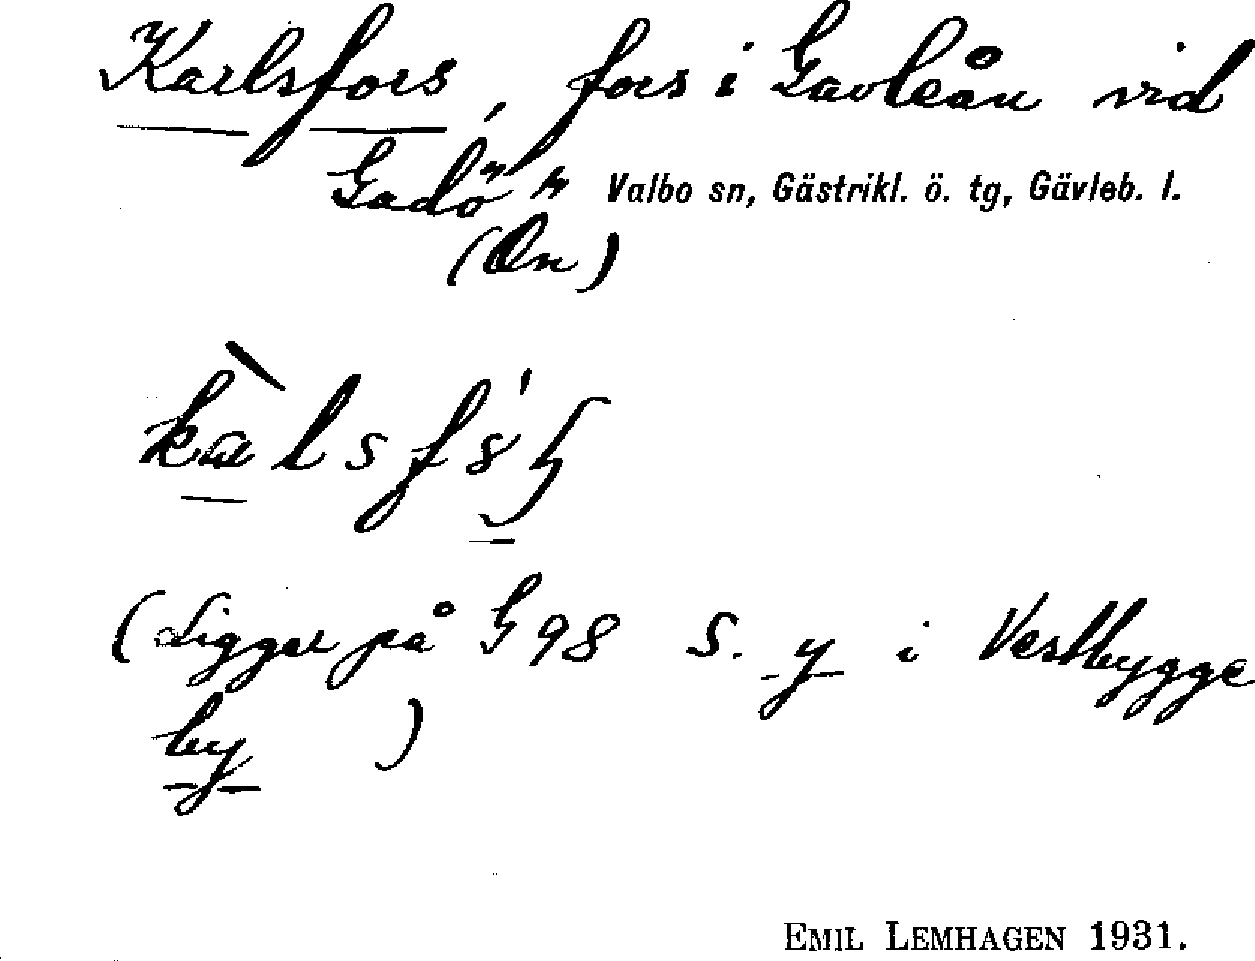 Karlsfors, fors i Gavleån vid
Gadö" " Valbo sn, Gästrikl. ö. tg, Gävleb. l.
(Ön)
(Ligger på G 98 S. y i Vestbygge
by )
EMIL LEMHAGEN 1931.